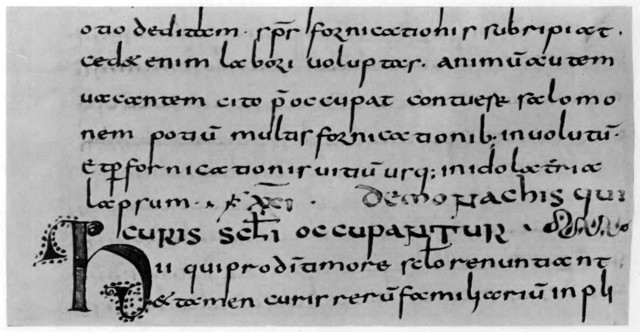 otio deditam. sp̄s fornicationis subripiat.
cedet enim labori voluptas. animū autem
vacantem cito p̄occupat contuere salomo
nem potiū multis fornicationib; involutū.
et ꝑ fornicationis vitiū usq; in idolatria
lapsum. XXI. de monachis qui
curis sc̄li occupantur.
Hii qui pro dī amore sc̄lo renuntiant
et tamen curis rerū familiariū inpli